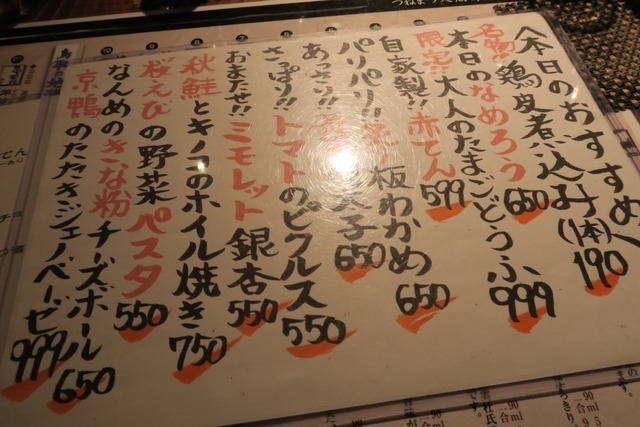 〈本日のおすすめ〉
名物!!鶏皮煮込み(1本)190
本日のなめろう650
限定!!大人のたまごどうふ999
自家製!!赤てん599
パリパリ!!板わかめ650
あっさり!!子650
さっぱり!!トマトのピクルス550
おまたせ!!ミモレット銀杏550
秋鮭とキノコのホイル焼き750
桜えびの野菜パスタ550
なんめのきな粉チーズボール650
京鴨のたたきジェノベーゼ999